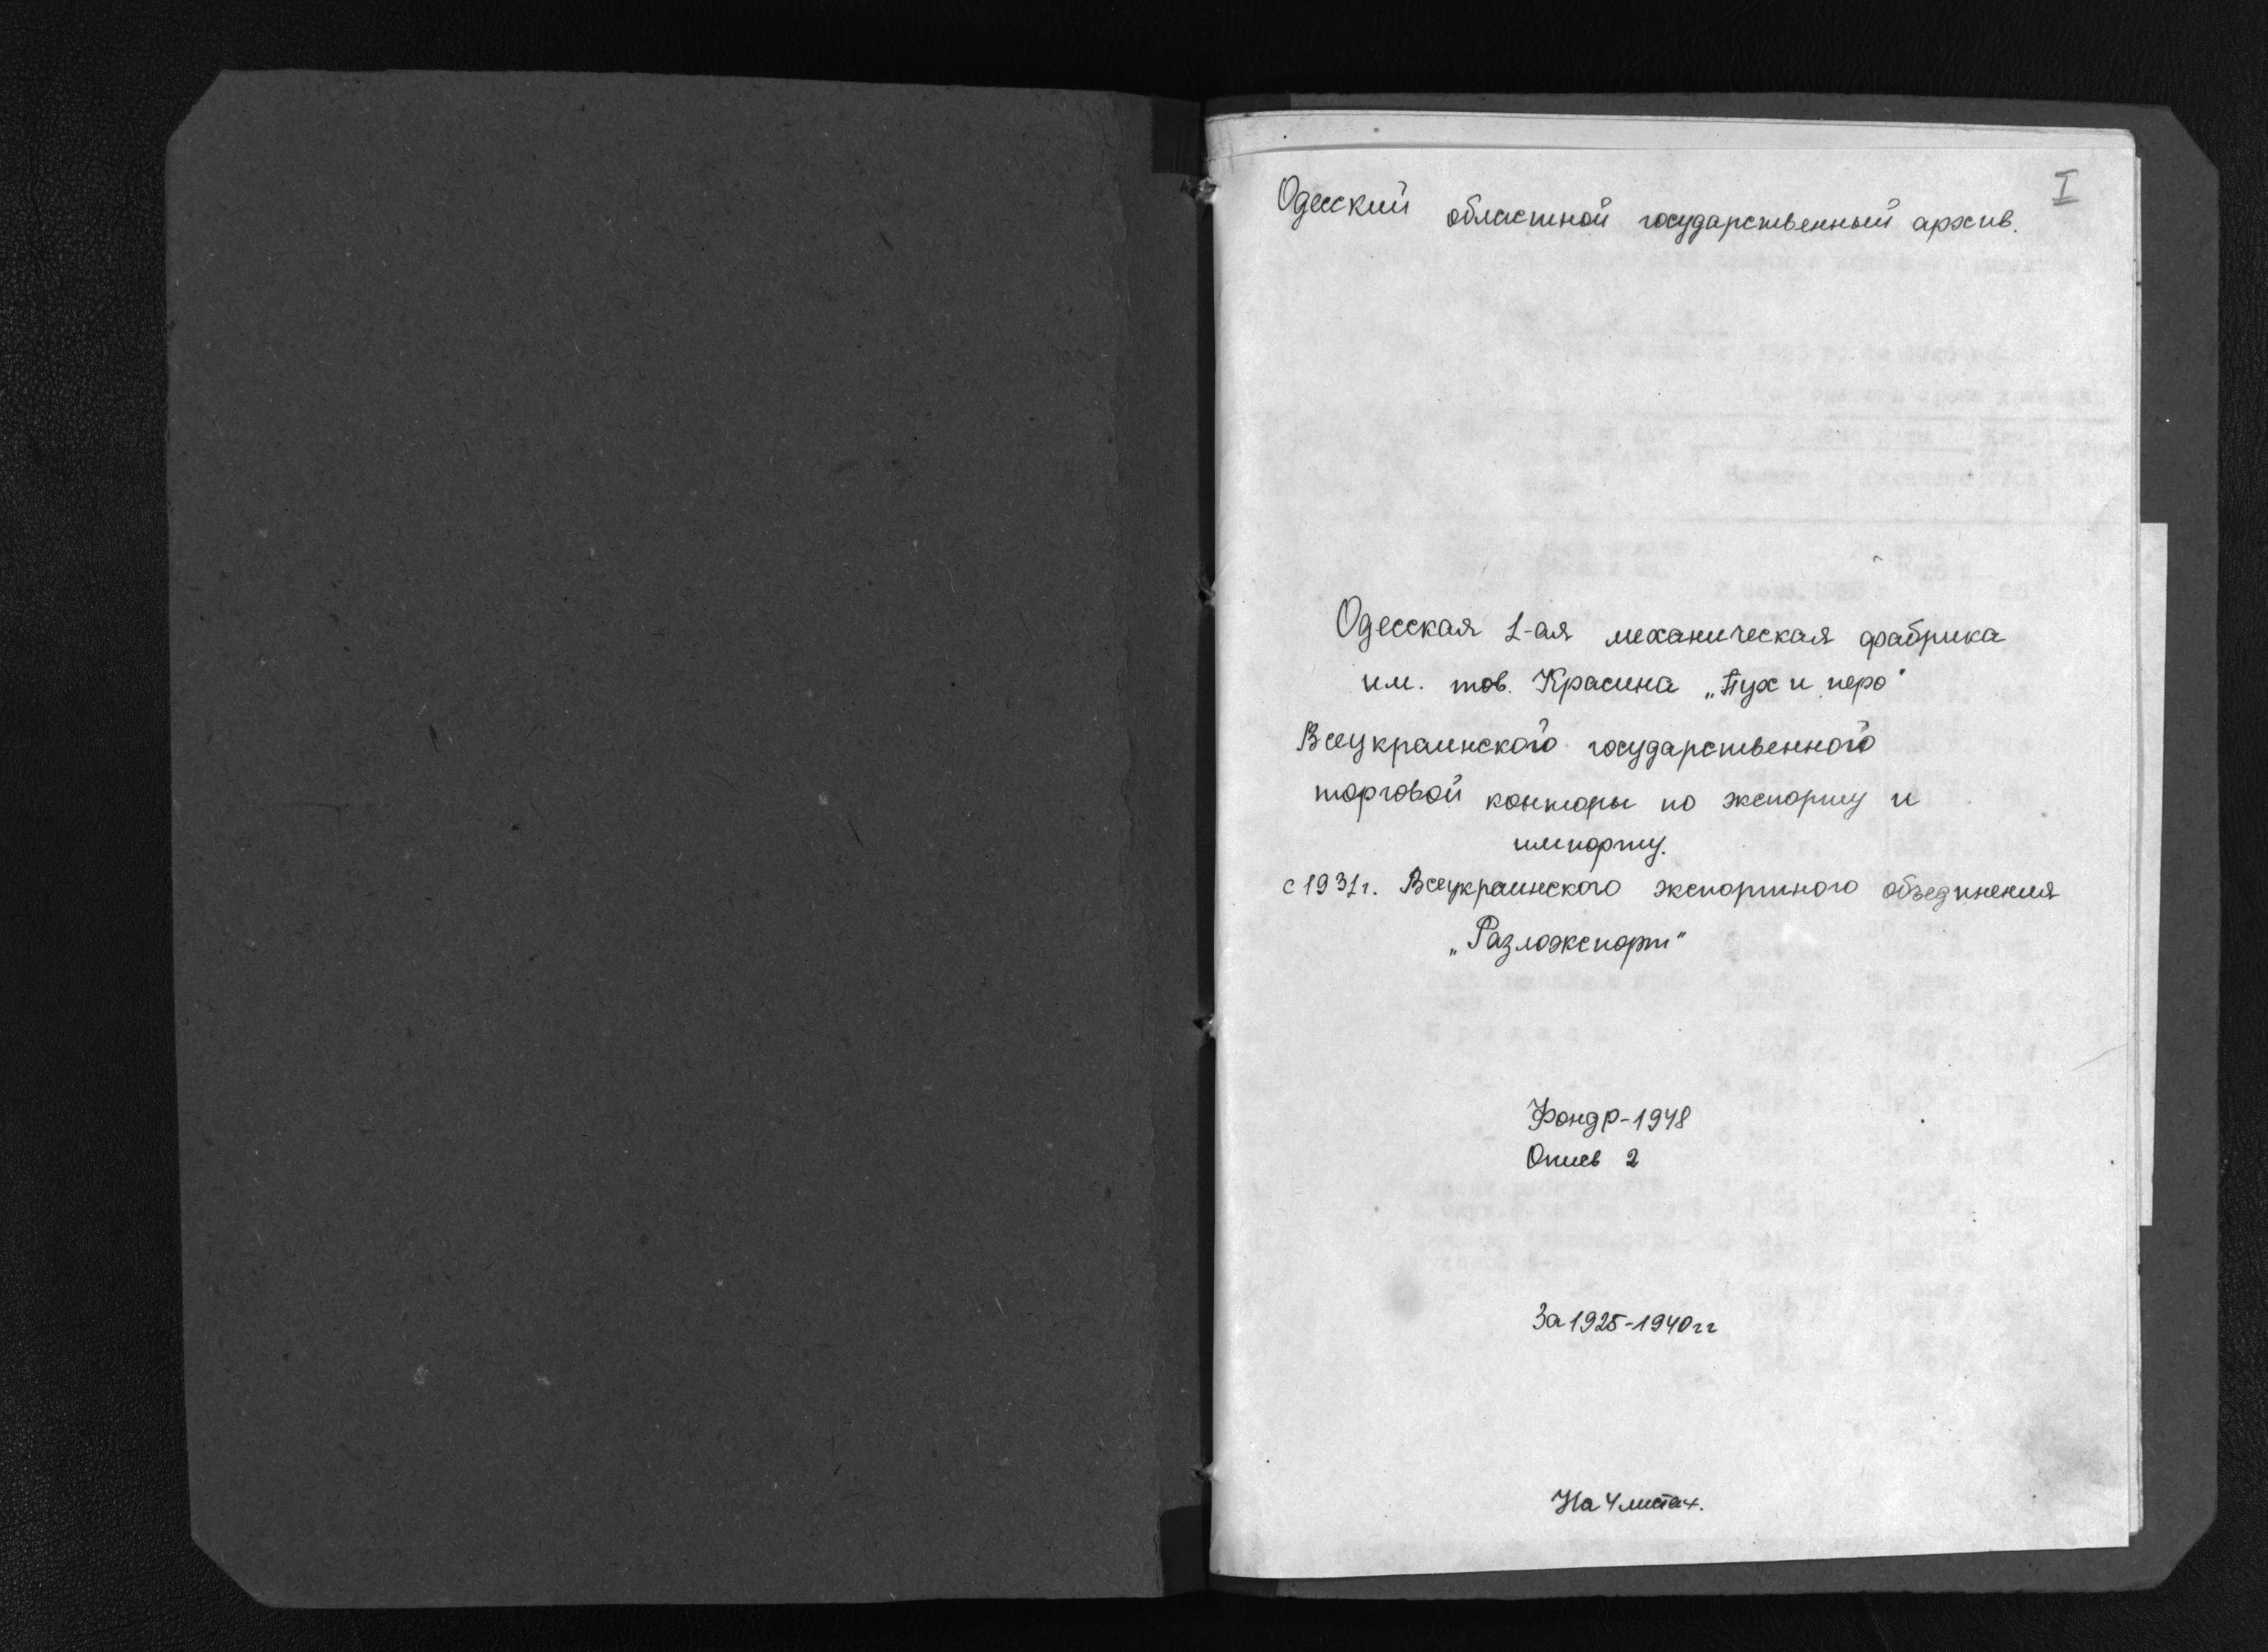 I
Одесский областной государственный архив.
Одесская 1-ая механическая фабрика
им. тов. Красина „Пух и перо"
Всеукраинского государственного
торговой конторы по экспорту и
импорту.
с 1931г. Всеукраинского экспортного объединения
„Разлоэкспорт"
Фонд р-1948
Опись 2
За 1925-1940гг
На 4 листах.